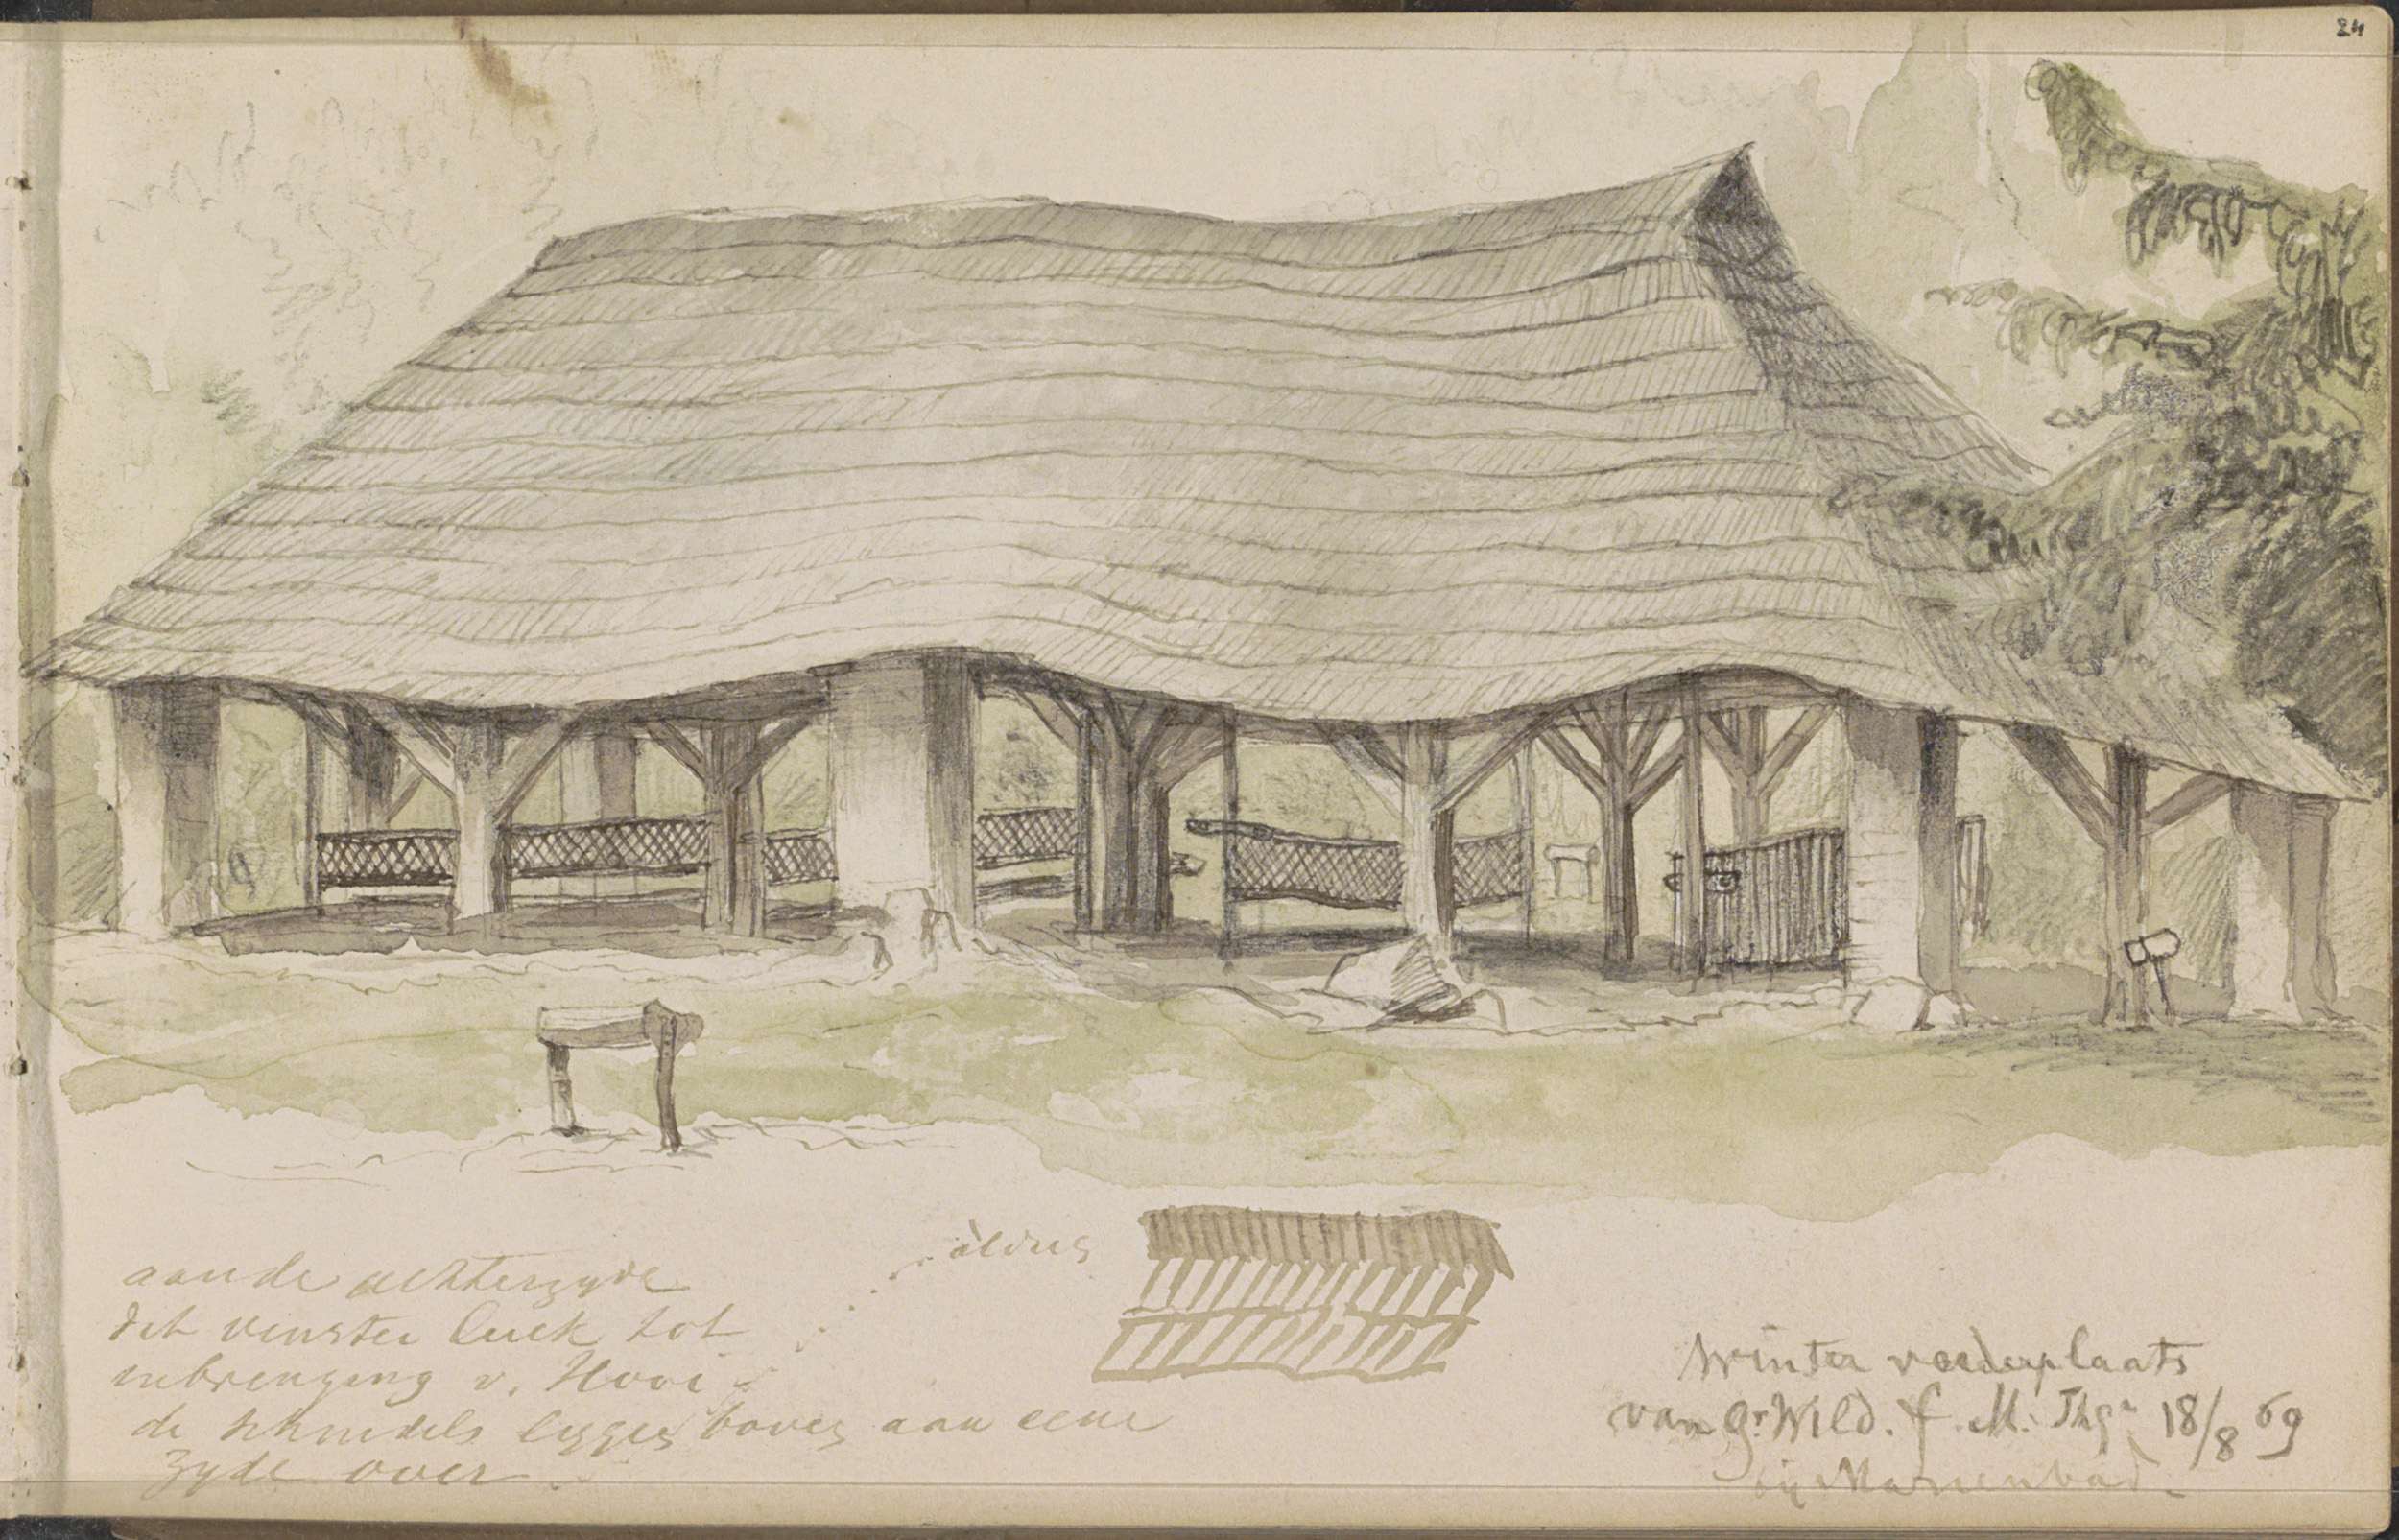 24
aldus
aan de achterzyde
dit venster luik tot
inbrenging v. Hooi
de schindels liggen boven aan eene
zyde over
Winter voederplaats
van gr. Wild. f. M. 18/8 69
bij Marienbad